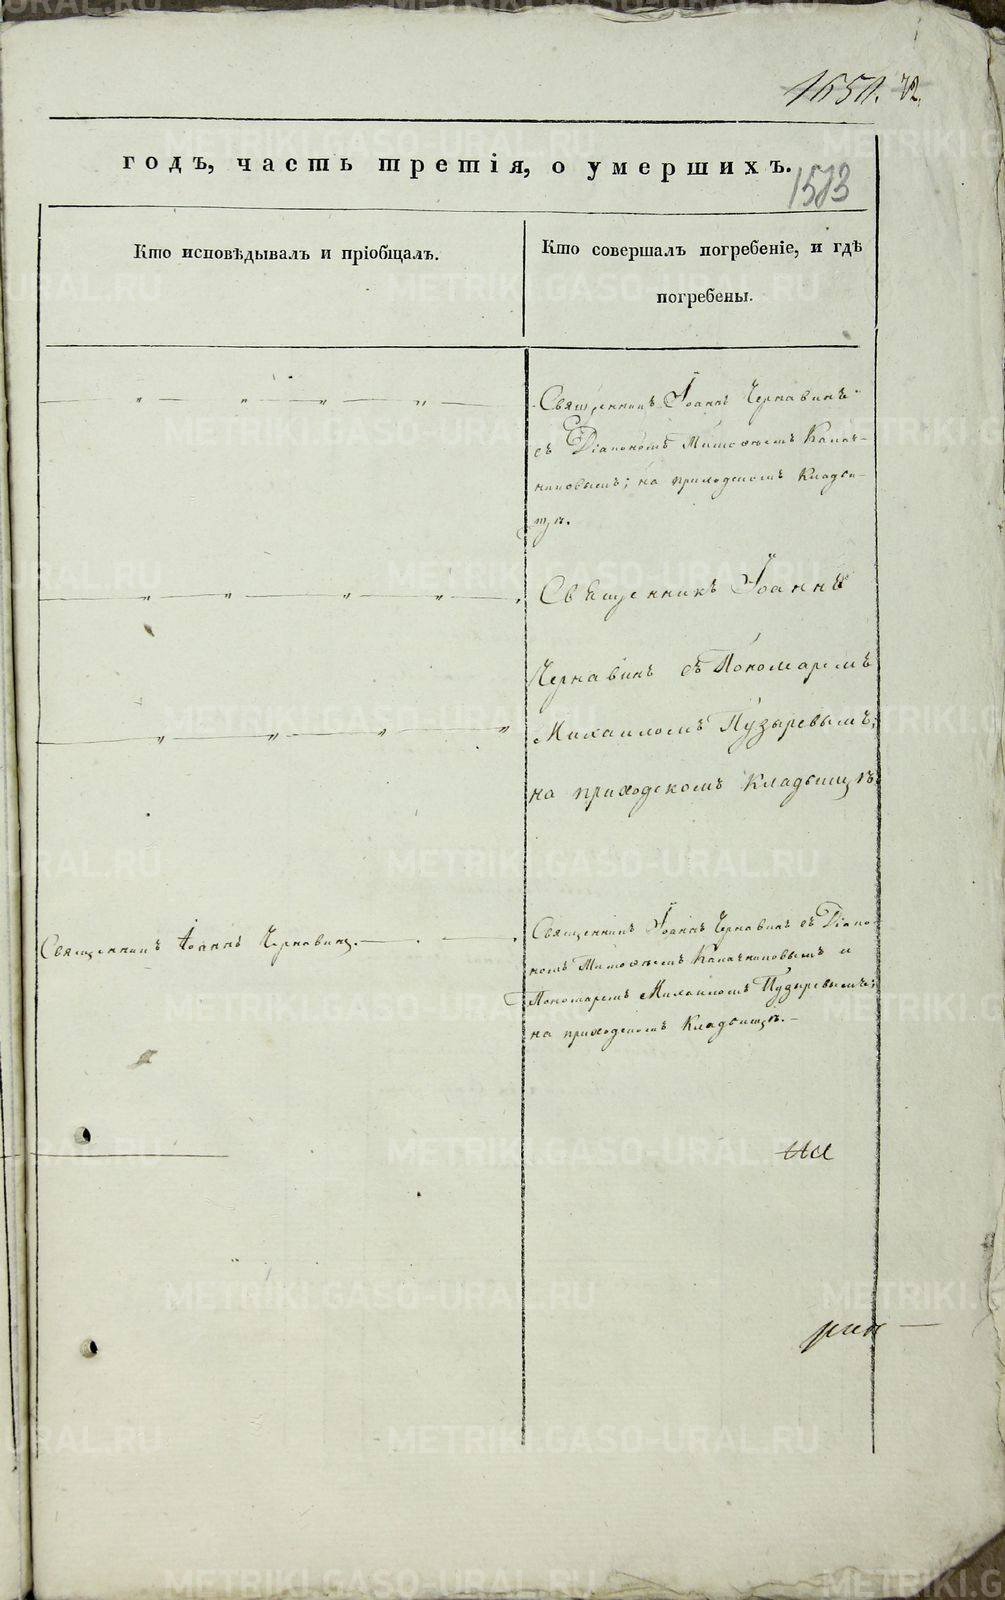 1651. 72.
годъ, часть третія, о умершихъ.
1573
Кто исповѣдывалъ и пріобщалъ.
Кто совершалъ погребеніе, и гдѣ
погребены.
Священникъ Іоаннъ Чернавинъ
съ Діакономъ Матѳѣемъ Калач-
никовымъ; на приходскомъ Кладби-
щѣ.
Священникъ Іоаннъ
Чернавинъ съ Пономаремъ
Михаиломъ Пузыревымъ;
на приходскомъ Кладбищѣ
Священникъ Іоаннъ Чернавинъ.
Священникъ Іоаннъ Чернавинъ съ Діако-
номъ Матѳѣемъ Калачниковымъ и
Пономаремъ Михаиломъ Пузыревымъ;
на приходскомъ Кладбищѣ.
METRIKI.GASO-URAL.RU